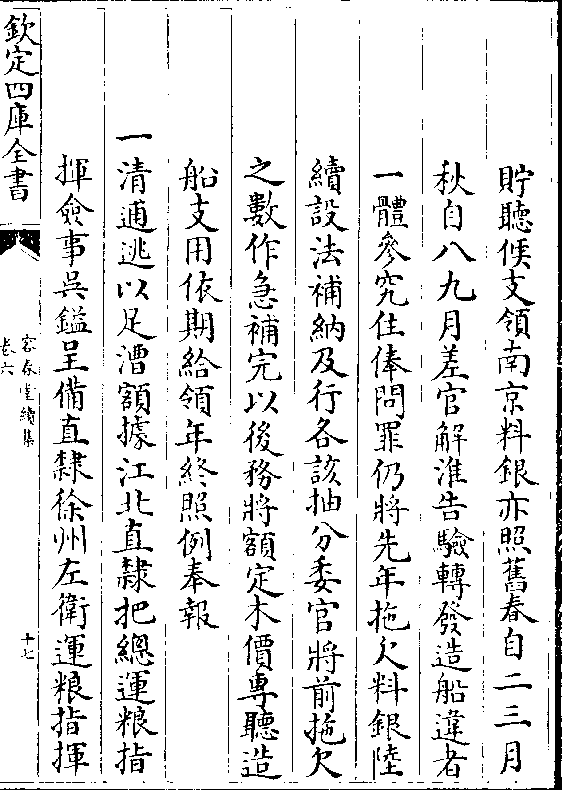 貯聽候支領南京料銀亦照舊春自二三月
秋自八九月差官解淮告驗轉發造船違者
一體參究住俸問罪仍將先年拖欠料銀陸
續設法補納及行各該抽分委官將前拖欠
之數作急補完以後務將額定木價專聽造
船支用依期給領年終照例奉報
一清逋逃以足漕額據江北直隸把總運粮指
揮僉事吳鎰呈備直隸徐州左衛運粮指揮
欽定四庫全書
容春堂續集
卷六
十七